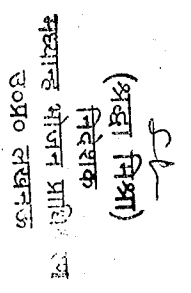 (श्रद्धा मिश्रा)
निदेशक
मध्यान्ह भोजन
उ०प्र० लखनऊ